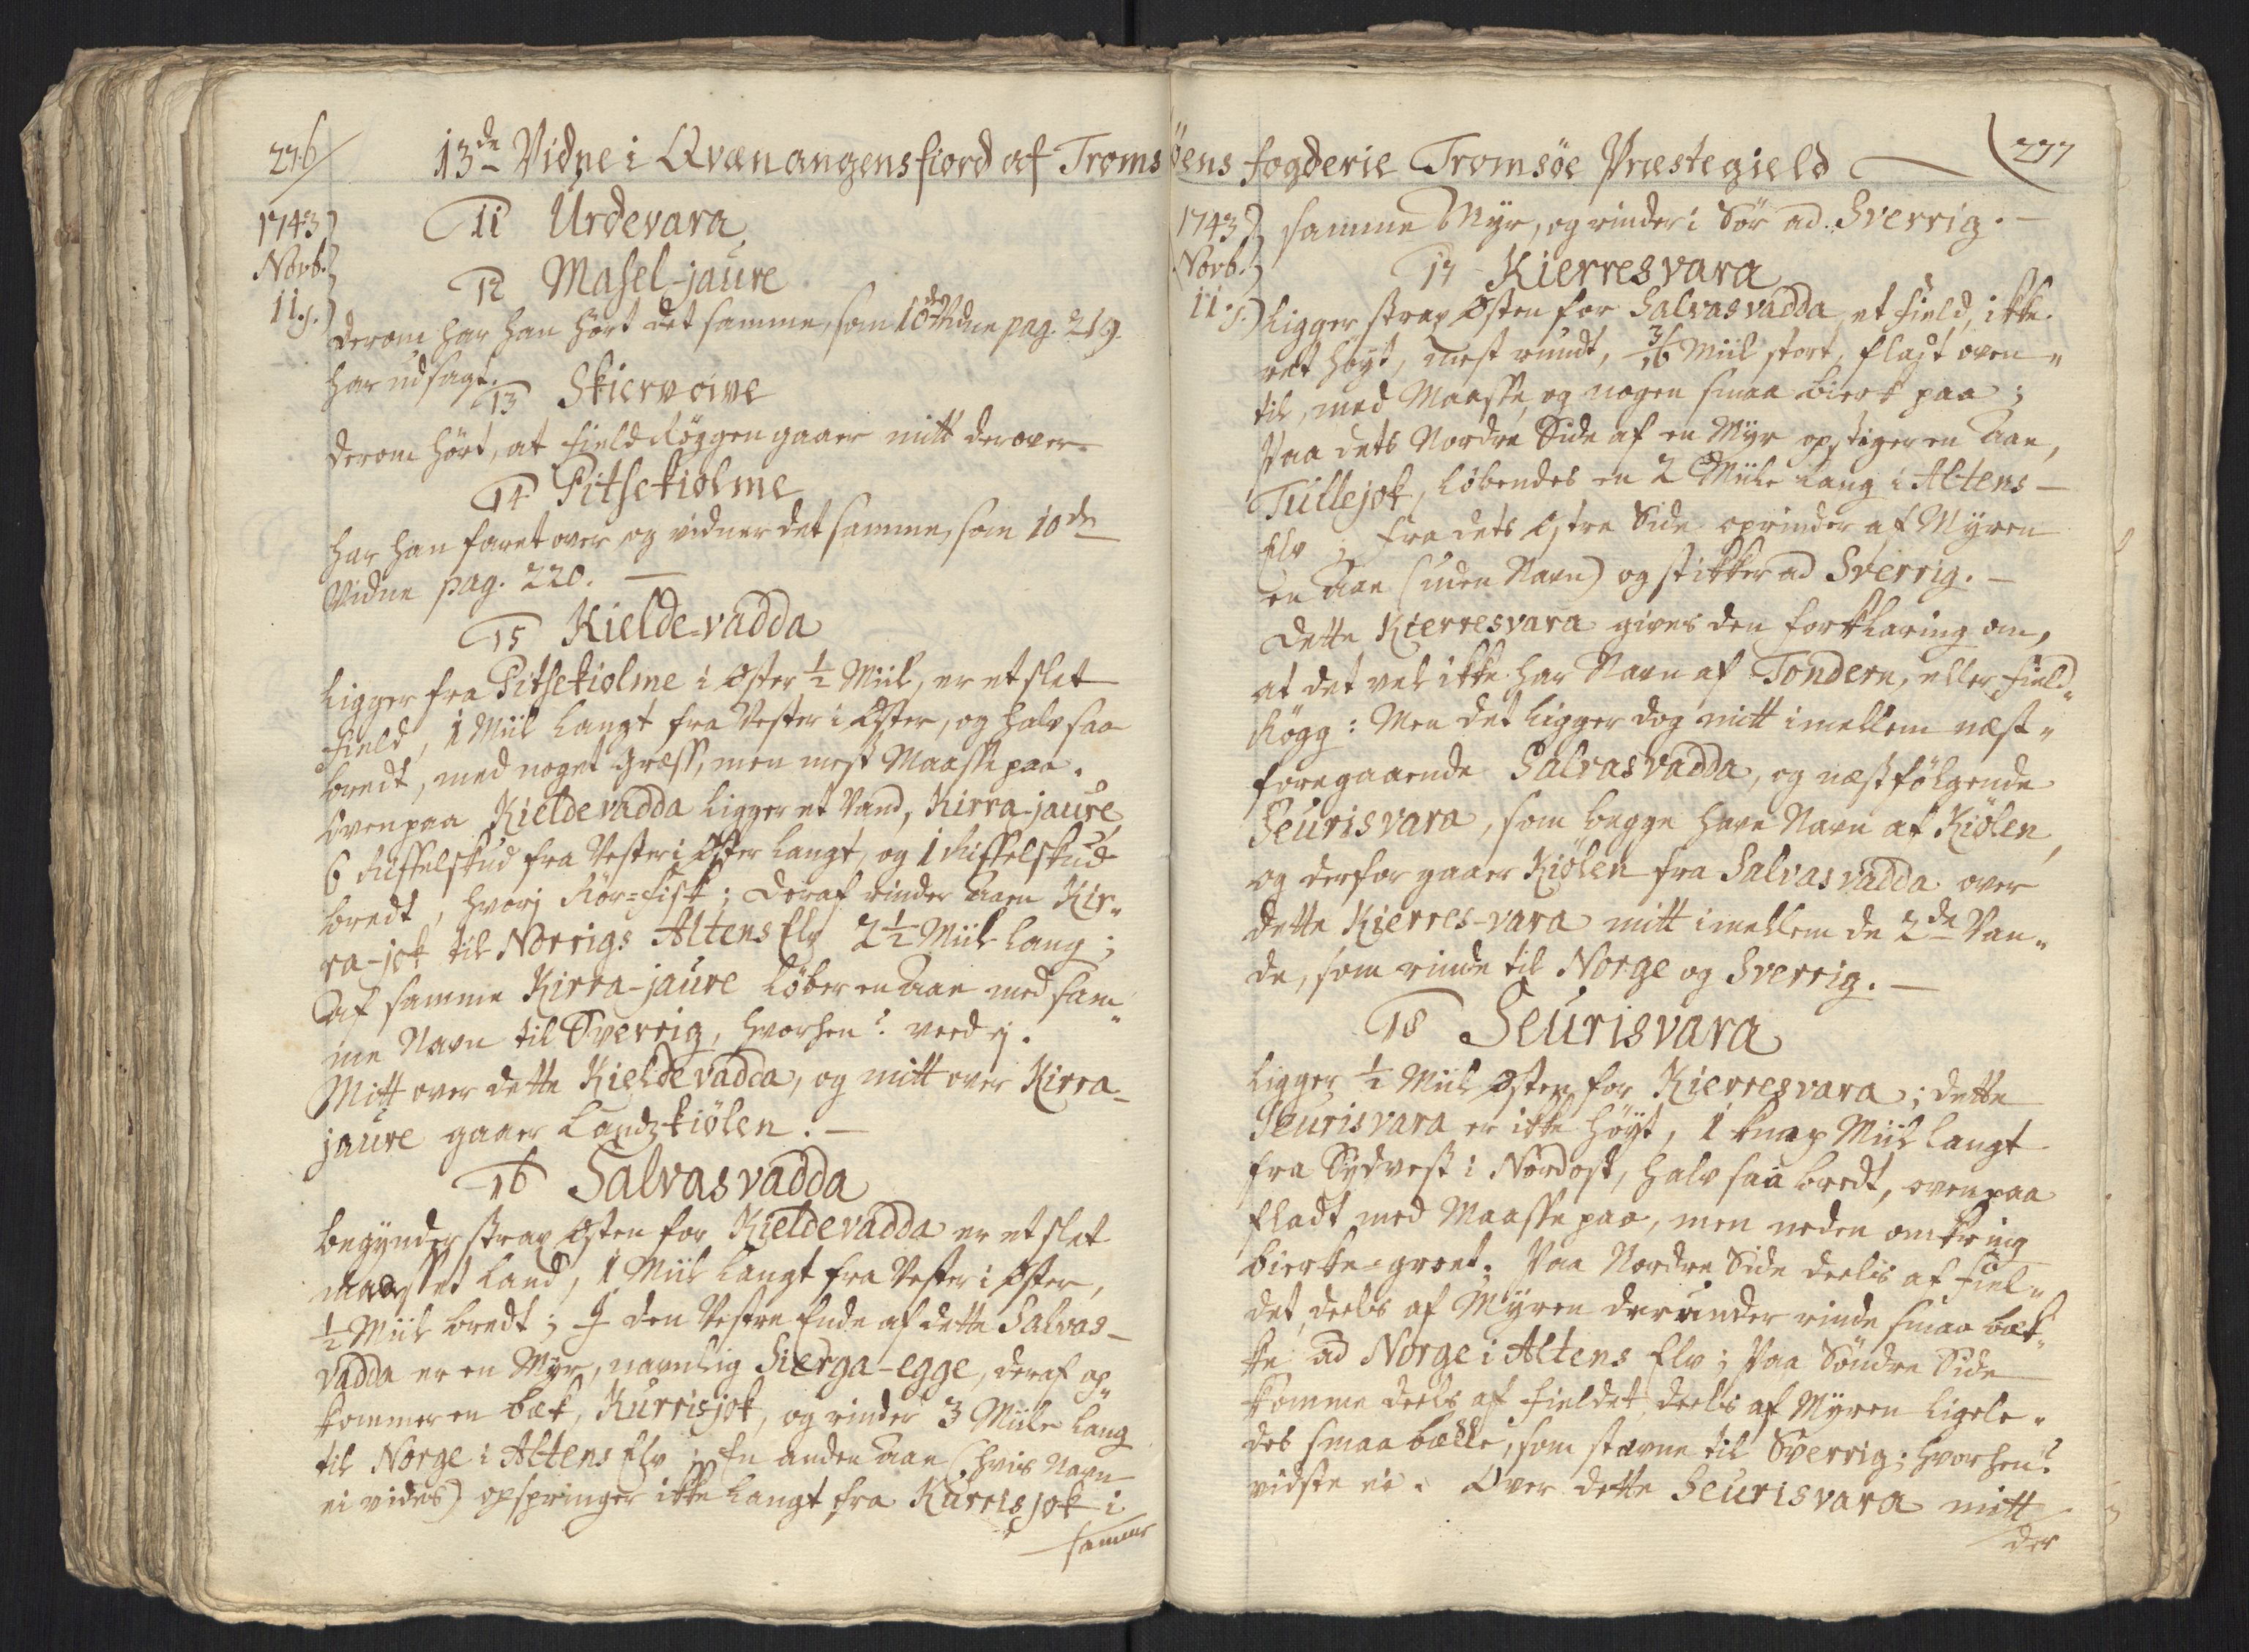 276
13de Vidne i Qvænangensfiord af Troms
1743
Novb.
11.
11 Urdevara
12 Masel-jaure
Derom har han hört det samme, som 10de Vidne pag. 219.
har udsagt.
13 Skiervoive
Derom hört, at Field Röggen gaaer mitt derover.
14 Pitsekiolme
har han faret over og vidner det samme, som 10de
Vidne pag. 220. —
15 Kielde-vadda
Ligger fra Pitsekiolme i Oster ½ Miil, er et slet
Field, 1 Miil langt fra Vester i Øster, og halv saa
bredt, med noget Græss, men mest Maasse paa.
Ovenpaa Kieldevadda ligger et Vand, Kirra-jaure
6 Riffelskud fra Vester i Øster langt, og 1 Riffelskud
bredt, hvori Rör-Fisk; Deraf rinder Aaen Kir„
ra-jok til Norrigs Altens Elv 2½ Miil lang;
Af samme Kirra-jaure löber en Aae med sam„
me Navn til Sverrig, hvorhen? veed ej.
Mitt over dette Kieldevadda, og mitt over Kirra-
jaure gaaer Landzkiölen. —
16 Salvasvadda
begynder strax Østen for Kieldevadda er et slet
maasset Land, 1 Miil langt fra Vester i Øster,
½ Miil bredt; I den Vestre Ende af dette Salvas-
vadda er en Myr, navnlig Sierga-egge, deraf op„
kommer en bæk, Kurrisjok, og rinder 3 Miile lang
til Norge i Altens Elv; En anden Aae (hvis Navn
ei vides) opspringer ikke langt fra Kurrisjok i
samme
öens Fogderie Tromsöe Præstegield
277
1743
Novb.
11.
samme Myr, og rinder i Sör ad Sverrig. —
17 Kierresvara
Ligger strax Østen for Salvasvadda, et Field, ikke
ret höyt, mest rundt, 3/16 Miil stort, fladt oven„
til, med Maasse, og nogen smaa bierk paa;
Paa dets Nordre Side af en Myr opstiger en Aae,
Tullejok, löbendes en 2 Miile lang i Altens
Elv; Fra dets Østre Side oprinder af Myren
en Aae (uden Navn) og stikker ad Sverrig. —
Dette Kierresvara gives den forklaring om,
at det vel ikke har Navn af Tondern, eller Field„
Rögg: Men det ligger dog mitt imellem næst„
foregaaende Salvasvadda, og næstfölgende
Seurisvara, som begge have Navn af Kiölen,
og derfor gaaer Kiölen fra Salvasvadda over
dette Kierres-vara mitt imellem de 2de Van„
de, som rinde til Norge og Sverrig. —
18 Seurisvara
Ligger ½ Miil Østen for Kierresvara; dette
Seurisvara er ikke höyt, 1 knap Miil langt
fra Sydvest i Nordost, halv saa bredt, ovenpaa
fladt med Maasse paa, men neden omkring
bierke-groet; Paa Nordre Side deels af Fiel„
det, deels af Myren derunder rinde smaa bæk„
ke ad Norge i Altens Elv; Paa Söndre Side
komme deels af Fieldet, deels af Myren ligele„
des smaa bække, som stævne til Sverrig; hvorhen?
vidste ei. Over dette Seurisvara mitt
der